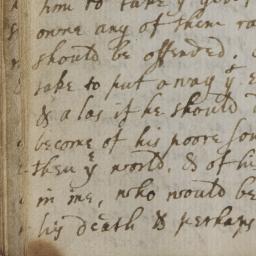 him to take yͤ
owne any of them ra
should be offended;
sake to put away yͤ
& alas if he should
become of his poore son
then yͤ world, & of hi
in me, who would be
his death & perhaps